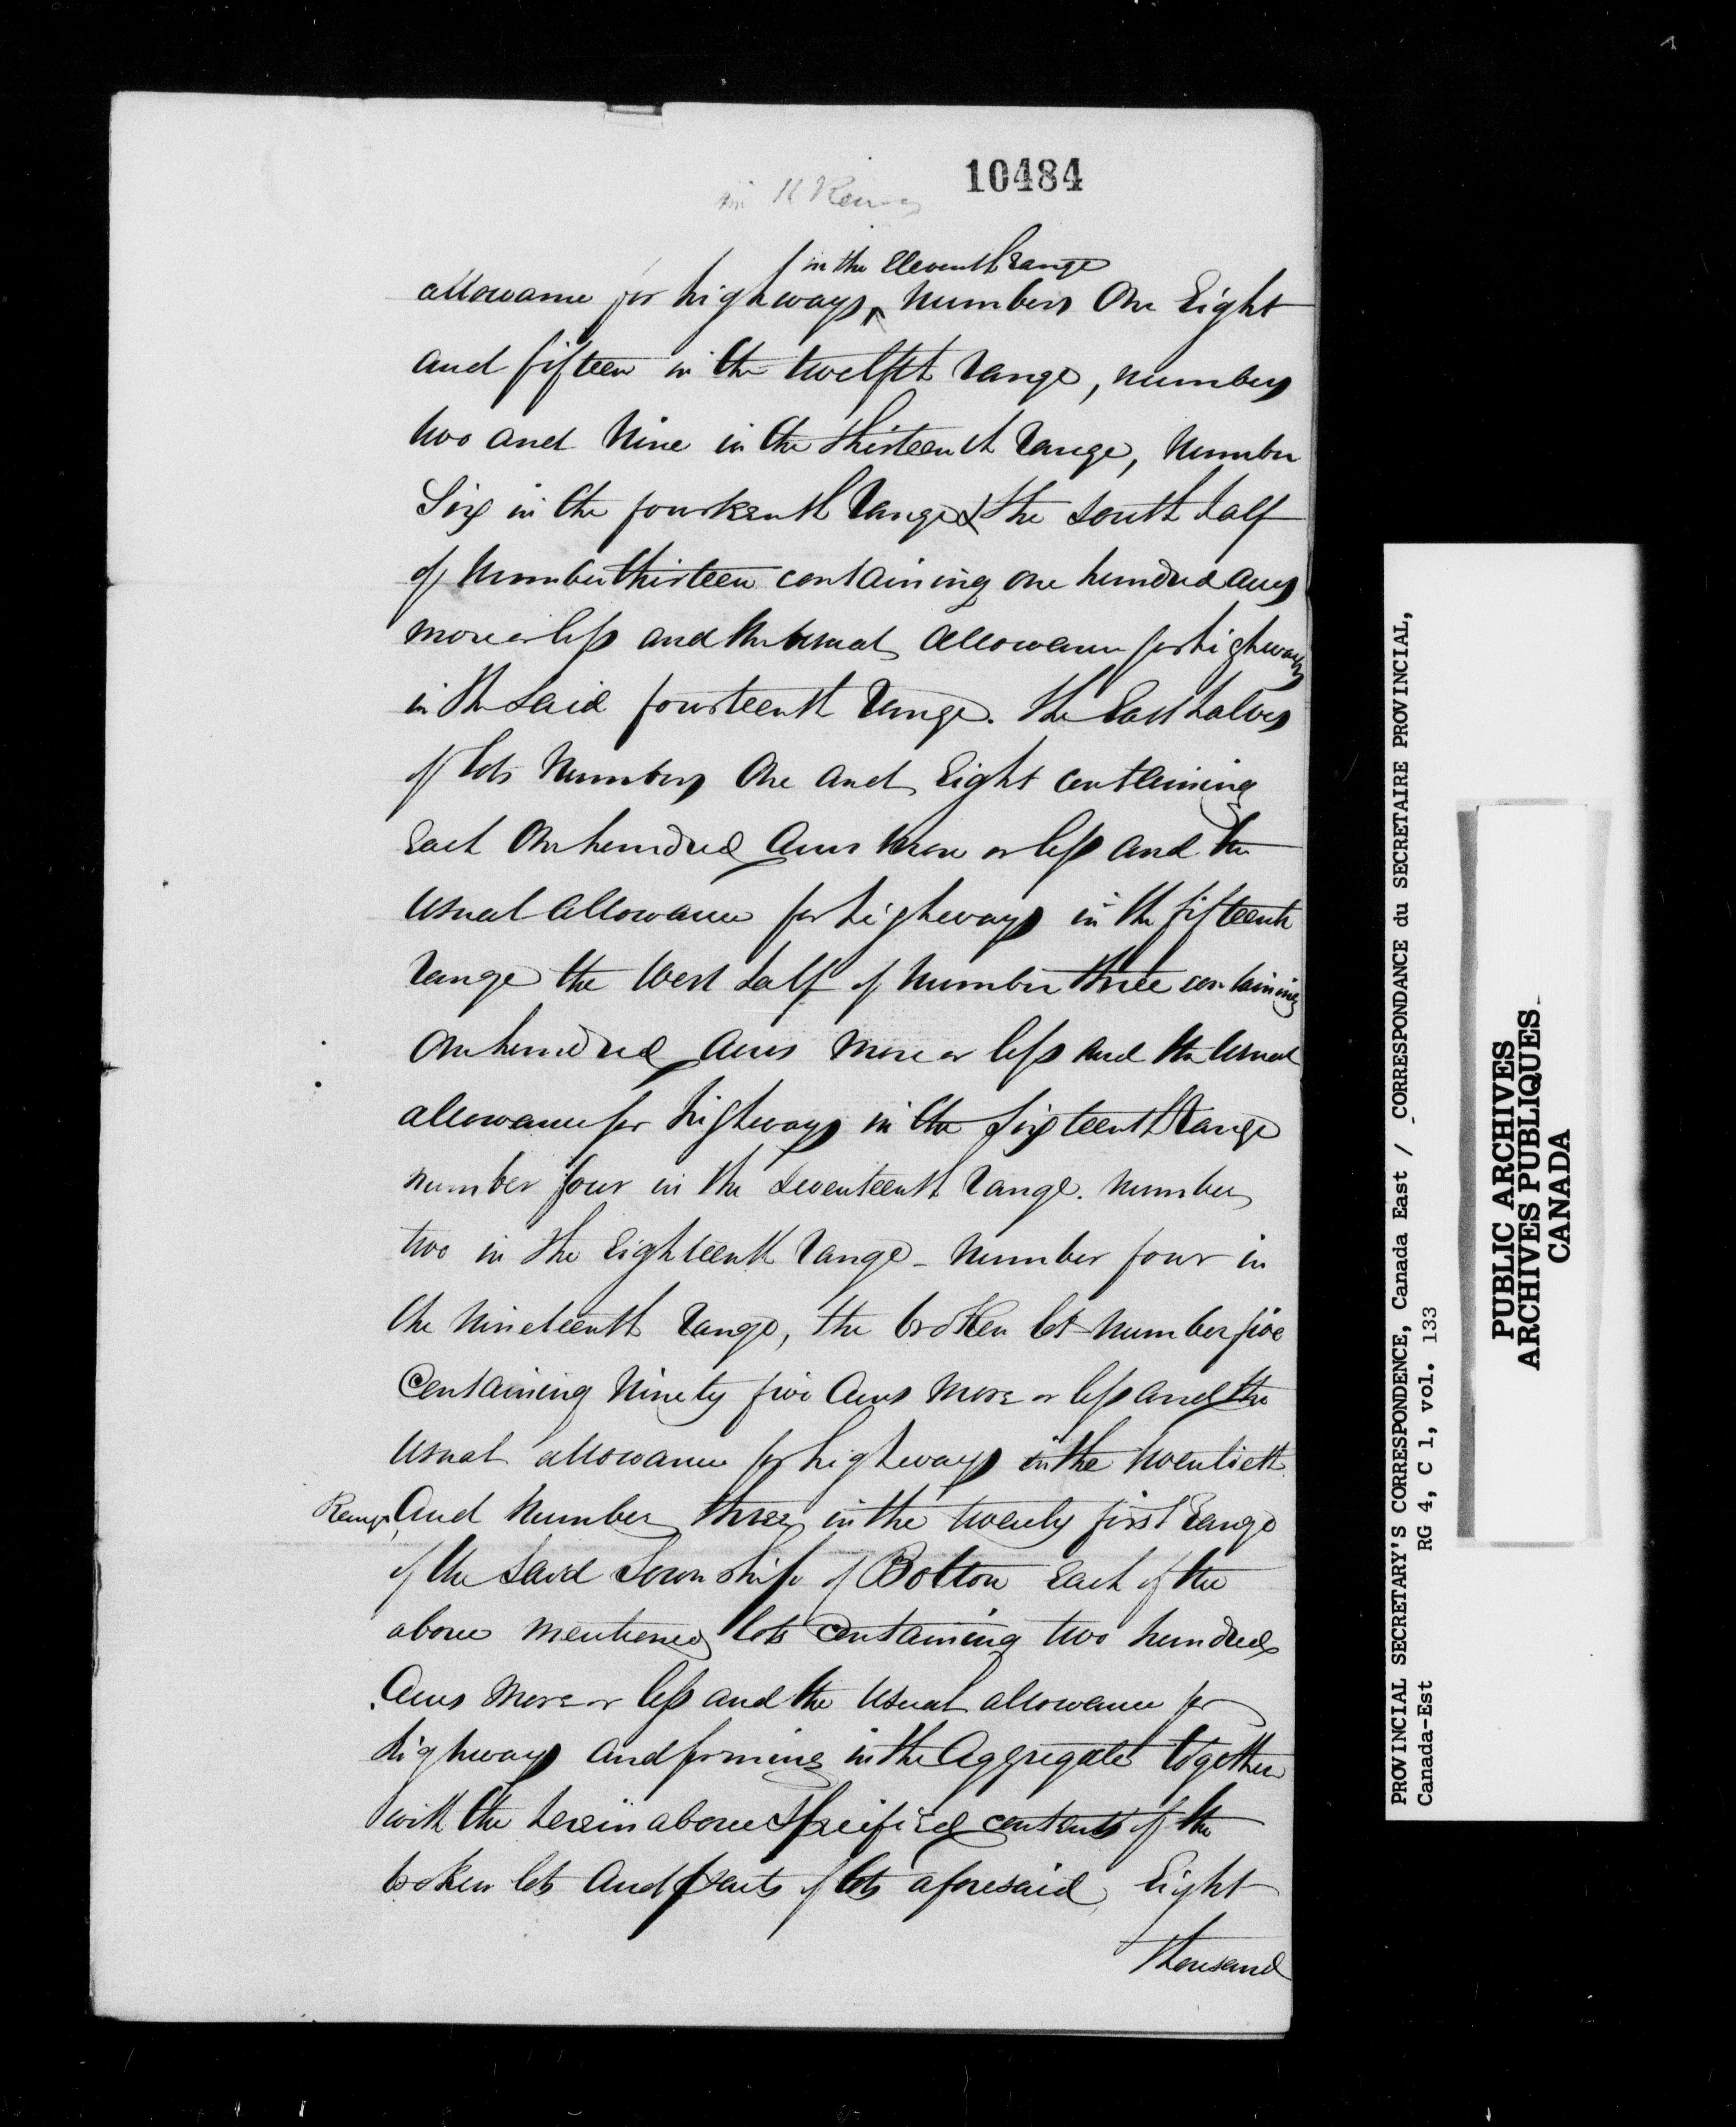 10484
in 11 Range
in the Eleventh range
allowance for highways, numbers One Eight
and fifteen in the twelfth range, numbers
two and Nine in the thirteenth range, number
Six in the fourteenth range & the South half
of Number thirteen containing one hundred acres
more or less and the usual allowance for highways
in the said fourteenth range. The East halves
of lots Numbers One and Eight containing
Each One hundred acres more or less and the
usual allowance for highways in the fifteenth
range the West half of number three containing
One hundred acres more or less and the usual
allowance for highways in the Sixteenth range
number four in the Seventeenth range. number
two in the Eighteenth range - number four in
the Nineteenth range, the broken lot number five
Containing Ninety five acres more or less and the
usual allowance for highways in the twentieth
Range, And Number three in the twenty first range
of the said Township of Bolton Each of the
above mentioned lots Containing two hundred
Acres more or less and the usual allowance for
highways and forming in the Aggregate together
with the herein above specified contents of the
broken lots and parts of lots aforesaid, Eight
Thousand
PROVINCIAL SECRETARY'S CORRESPONDENCE, Canada East / CORRESPONDANCE du SECRETAIRE PROVINCIAL,
Canada-Est RG 4, C 1, vol. 133
PUBLIC ARCHIVES
ARCHIVES PUBLIQUES
CANADA